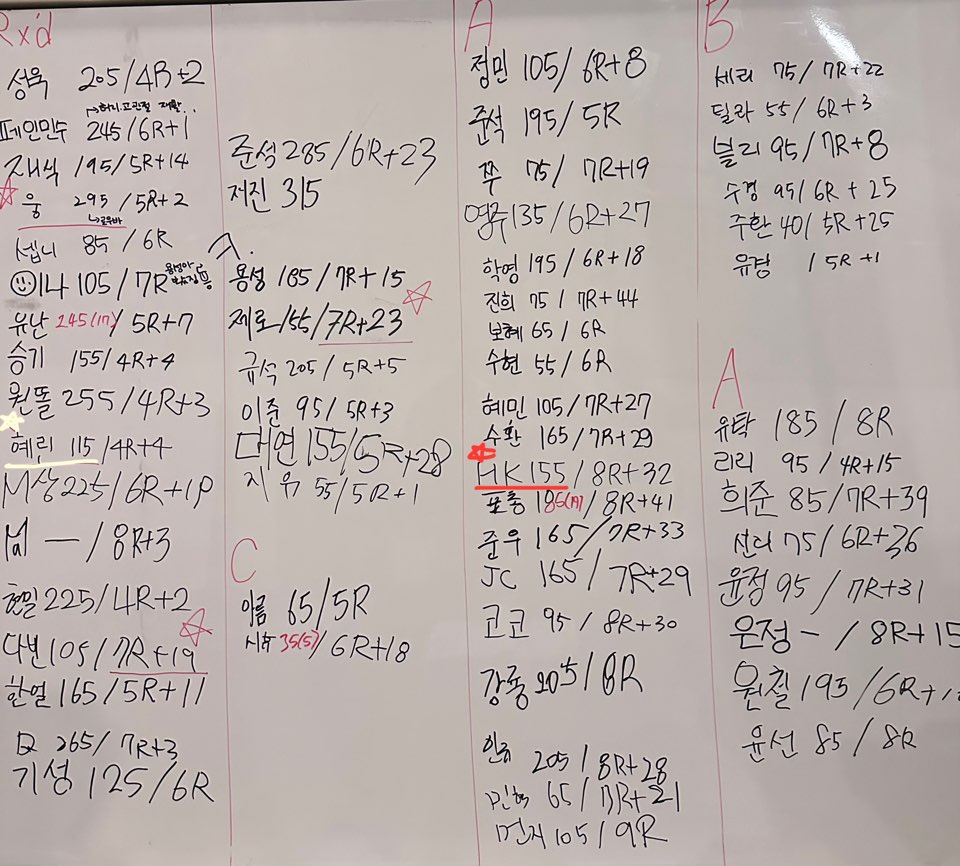 Rx'd
성욱 205/4R+2
→허리.고관절 재활..
페인민수 245/6R+1
재식 195/5R+14
웅 295/5R+2
셉니 85/6R
이나 105/7R
유난 245(17)/5R+7
승기 155/4R+4
원똘 255/4R+3
혜리 115/4R+4
M상 225/6R+19
— /8R+3
현일 225/4R+2
다빈 105/7R+19
한열 165/5R+11
Q 265/7R+3
기성 125/6R
준석 285/6R+23
저진 315
A.
용성 185/7R+15
제로 155/7R+23
규석 205/5R+5
이준 95/5R+3
대연 155/5R+28
지유 55/5R+1
C
아름 65/5R
35(5)/6R+18
A
정민 105/6R+8
준석 195/5R
쭈 75/7R+19
영주 135/6R+27
학영 195/6R+18
진희 75/7R+44
보혜 65/6R
수현 55/6R
혜민 105/7R+27
수환 165/7R+29
HK 155/8R+32
/8R+41
준우 165/7R+33
JC 165/7R+29
코코 95/8R+30
강룡 205/8R
205/8R+28
민혁 65/
먼지 105/9R
B
세리 75/7R+22
딜라 55/6R+3
블리 95/7R+8
수경 95/6R+25
주환 40/5R+25
유경 /5R+1
A
유탁 185/8R
리리 95/4R+15
희준 85/7R+39
선디 75/6R+36
윤정 95/7R+31
은정 - /8R+15
원칠 195/6R+
윤선 85/8R